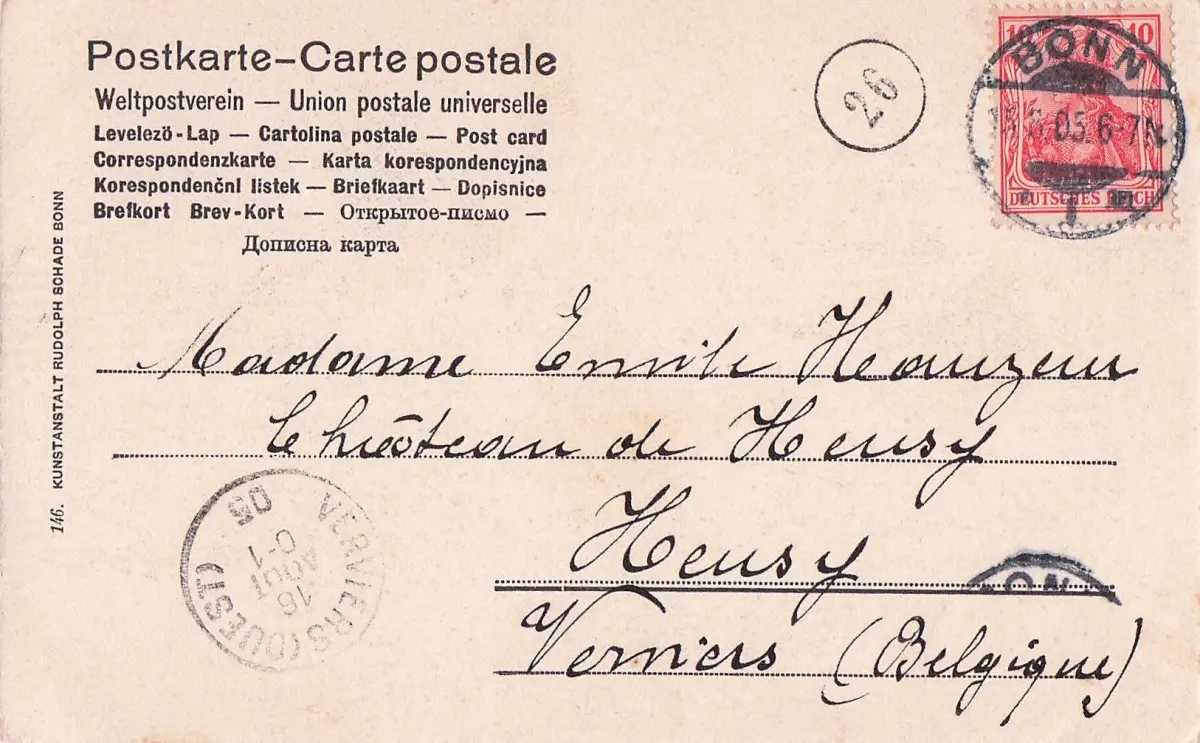 Postkarte–Carte postale
Weltpostverein — Union postale universelle
Levelezö-Lap — Cartolina postale — Post card
Correspondenzkarte — Karta korespondencyjna
Korespondenčnl listek — Briefkaart — Dopisnice
Brefkort Brev-Kort — Открытое-письмо —
Дописна карта
26
10 10
BONN
.05.6-7N.
DEUTSCHES REICH
1
146. KUNSTANSTALT RUDOLPH SCHADE BONN
Madame Emile Hauzeur
Château de Heusy
Heusy
Verviers (Belgique)
VERVIERS (OUEST)
16
AOUT
0-1
05
ON